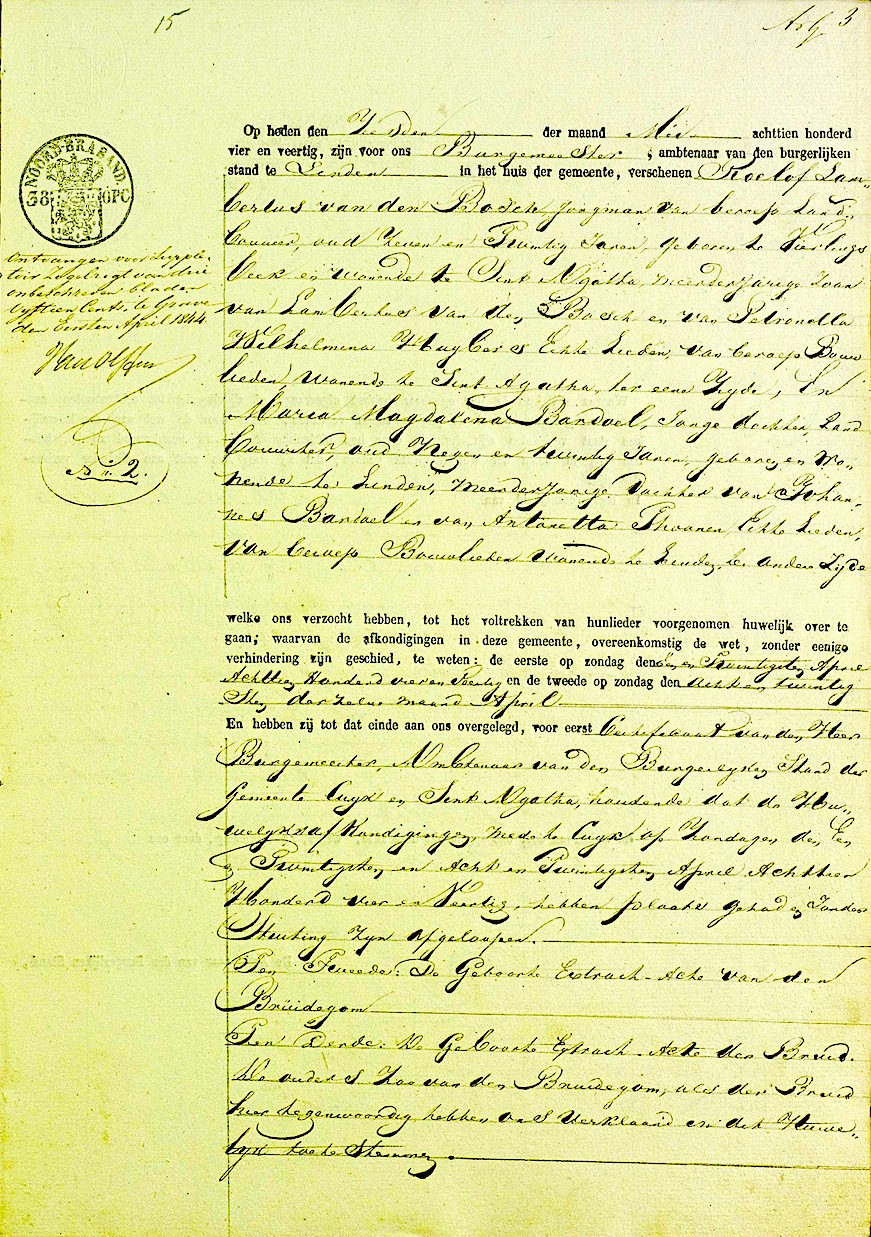 15
3
NOORD-BRABAND.
38 OPC
Ontvangen voor supple-
toir Zegelregt van drie
onbeschreven bladen
vyftien Cents, te Grave
den Eersten April 1844
N.o 2.
Op heden den Zesden der maand Mei achttien honderd
vier en veertig, zijn voor ons Burgemeester, ambtenaar van den burgerlijken
stand te Linden in het huis der gemeente, verschenen Roelof Lam-
bertus van den Bosch, jongman van beroep Land-
bouwer, oud Zeven en Twintig Jaren, geboren te Vierlings
beek en wonende te Sint Agatha, meerderjarige Zoon
van Lambertus van den Bosch en van Petronella
Wilhelmina Huybers Echte Lieden, van beroep Bouw
lieden, wonende te Sint Agatha, ter eene Zyde, En
Maria Magdalena Bardoel, Jonge dochter, Land
bouwster, oud Negen en twintig Jaren, geboren en wo-
nende te Linden, meerderjarige Dochter van Johan-
nes Bardoel en van Antonetta Thoonen, Echte Lieden,
van beroep Bouwlieden wonende te Linden, ter andere Zyde
welke ons verzocht hebben, tot het voltrekken van hunlieder voorgenomen huwelijk over te
gaan; waarvan de afkondigingen in deze gemeente, overeenkomstig de wet, zonder eenige
verhindering zijn geschied, te weten: de eerste op zondag den een en Twintigsten April
Achttien Honderd vier en Veertig en de tweede op zondag den acht en twintig
sten der zelve maand April
En hebben zij tot dat einde aan ons overgelegd, voor eerst Certificaat van den Heer
Burgemeester, Ambtenaar van den Burgerlyken Stand der
Gemeente Cuyk en Sint Agatha, houdende dat de Hu-
welyks afkondigingen, mede te Cuyk, op Zondagen den Een
en Twintigsten en Acht en Twintigsten April Achttien
Honderd vier en Veertig, hebben plaats gehad en Zonder
Stuiting Zyn afgeloopen.
Ten Tweede: De Geboorte Extract-Acte van den
Bruidegom
Ten Derde: De Geboorte Extract-Acte der Bruid.
De ouders zoo van den Bruidegom, als der Bruid
hier tegenwoordig hebben ons verklaard in dit Huwe-
lyk toe te Stemmen.